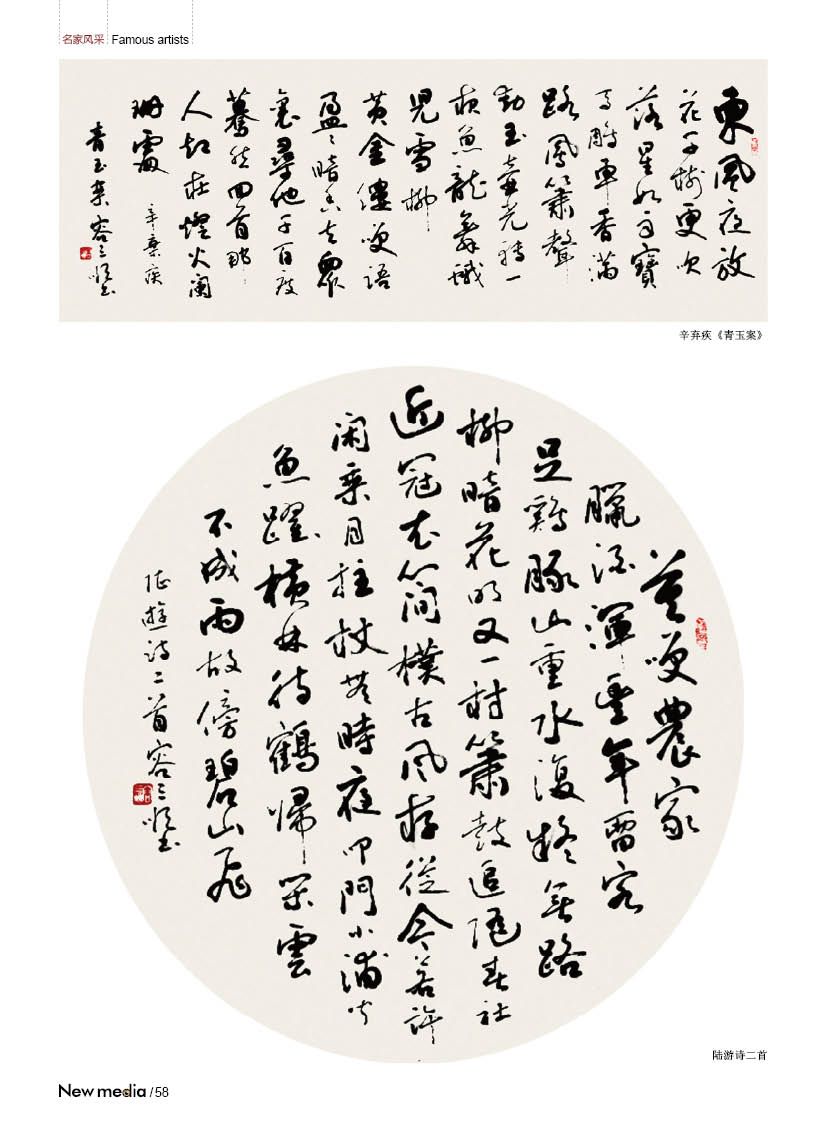 名家风采 Famous artists
東風夜放
花千樹更吹
落星如雨寶
馬雕車香滿
路鳳簫聲
動玉壺光轉一
夜魚龍舞蛾
兒雪柳
黃金縷笑語
盈〻暗香去眾
裏尋他千百度
驀然回首那
人卻在燈火闌
珊處
辛棄疾
青玉案
辛弃疾《青玉案》
莫笑農家
臘酒渾豐年留客
足雞豚山重水復疑無路
柳暗花明又一村簫鼓追隨春社
近冠衣簡樸古風存從今若許
閑乘月拄杖無時夜叩門小浦聞
魚躍橫林待鶴歸閑雲
不成雨故傍碧山飛
陸遊詩二首
陆游诗二首
New media /58